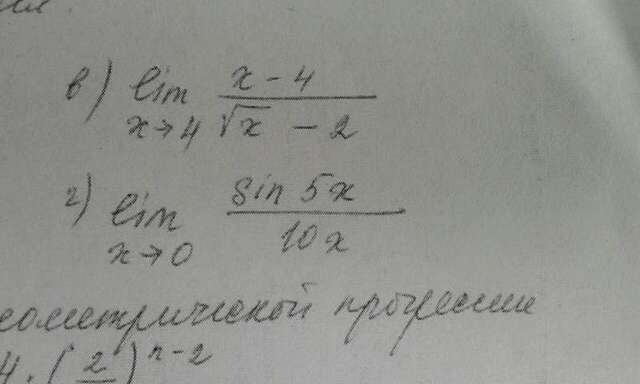 в) lim x→4 (x - 4)/(√x - 2)
г) lim x→0 (sin 5x)/(10x)
еометрической прогрессии
4 · (2/ )^n-2